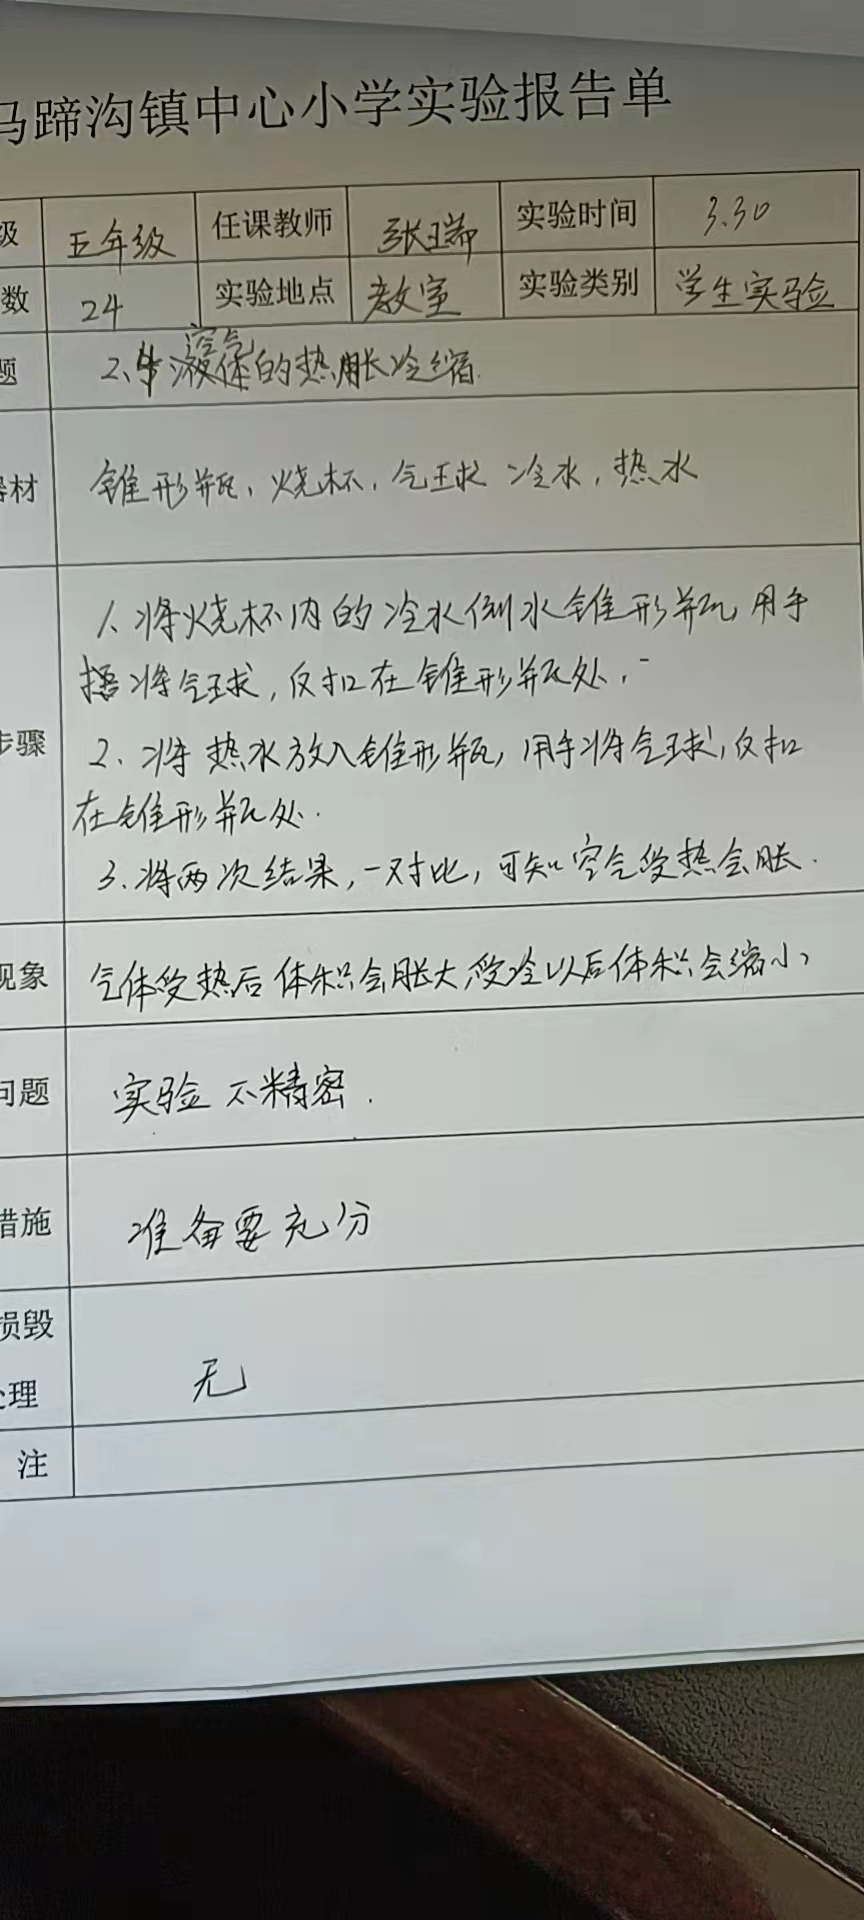 马蹄沟镇中心小学实验报告单
级 五年级 任课教师 张瑞 实验时间 3.30
数 24 实验地点 教室 实验类别 学生实验
空气
题 2、液体的热胀冷缩.
器材 锥形瓶、烧杯、气球 冷水，热水
1、将烧杯内的冷水倒水锥形瓶，用手
捂将气球，反扣在锥形瓶处.
步骤 2、将热水放入锥形瓶，用手将气球，反扣
在锥形瓶处.
3、将两次结果，一对比，可知空气受热会胀.
现象 气体受热后体积会胀大，受冷以后体积会缩小，
问题 实验不精密.
措施 准备要充分
损毁
处理 无
注